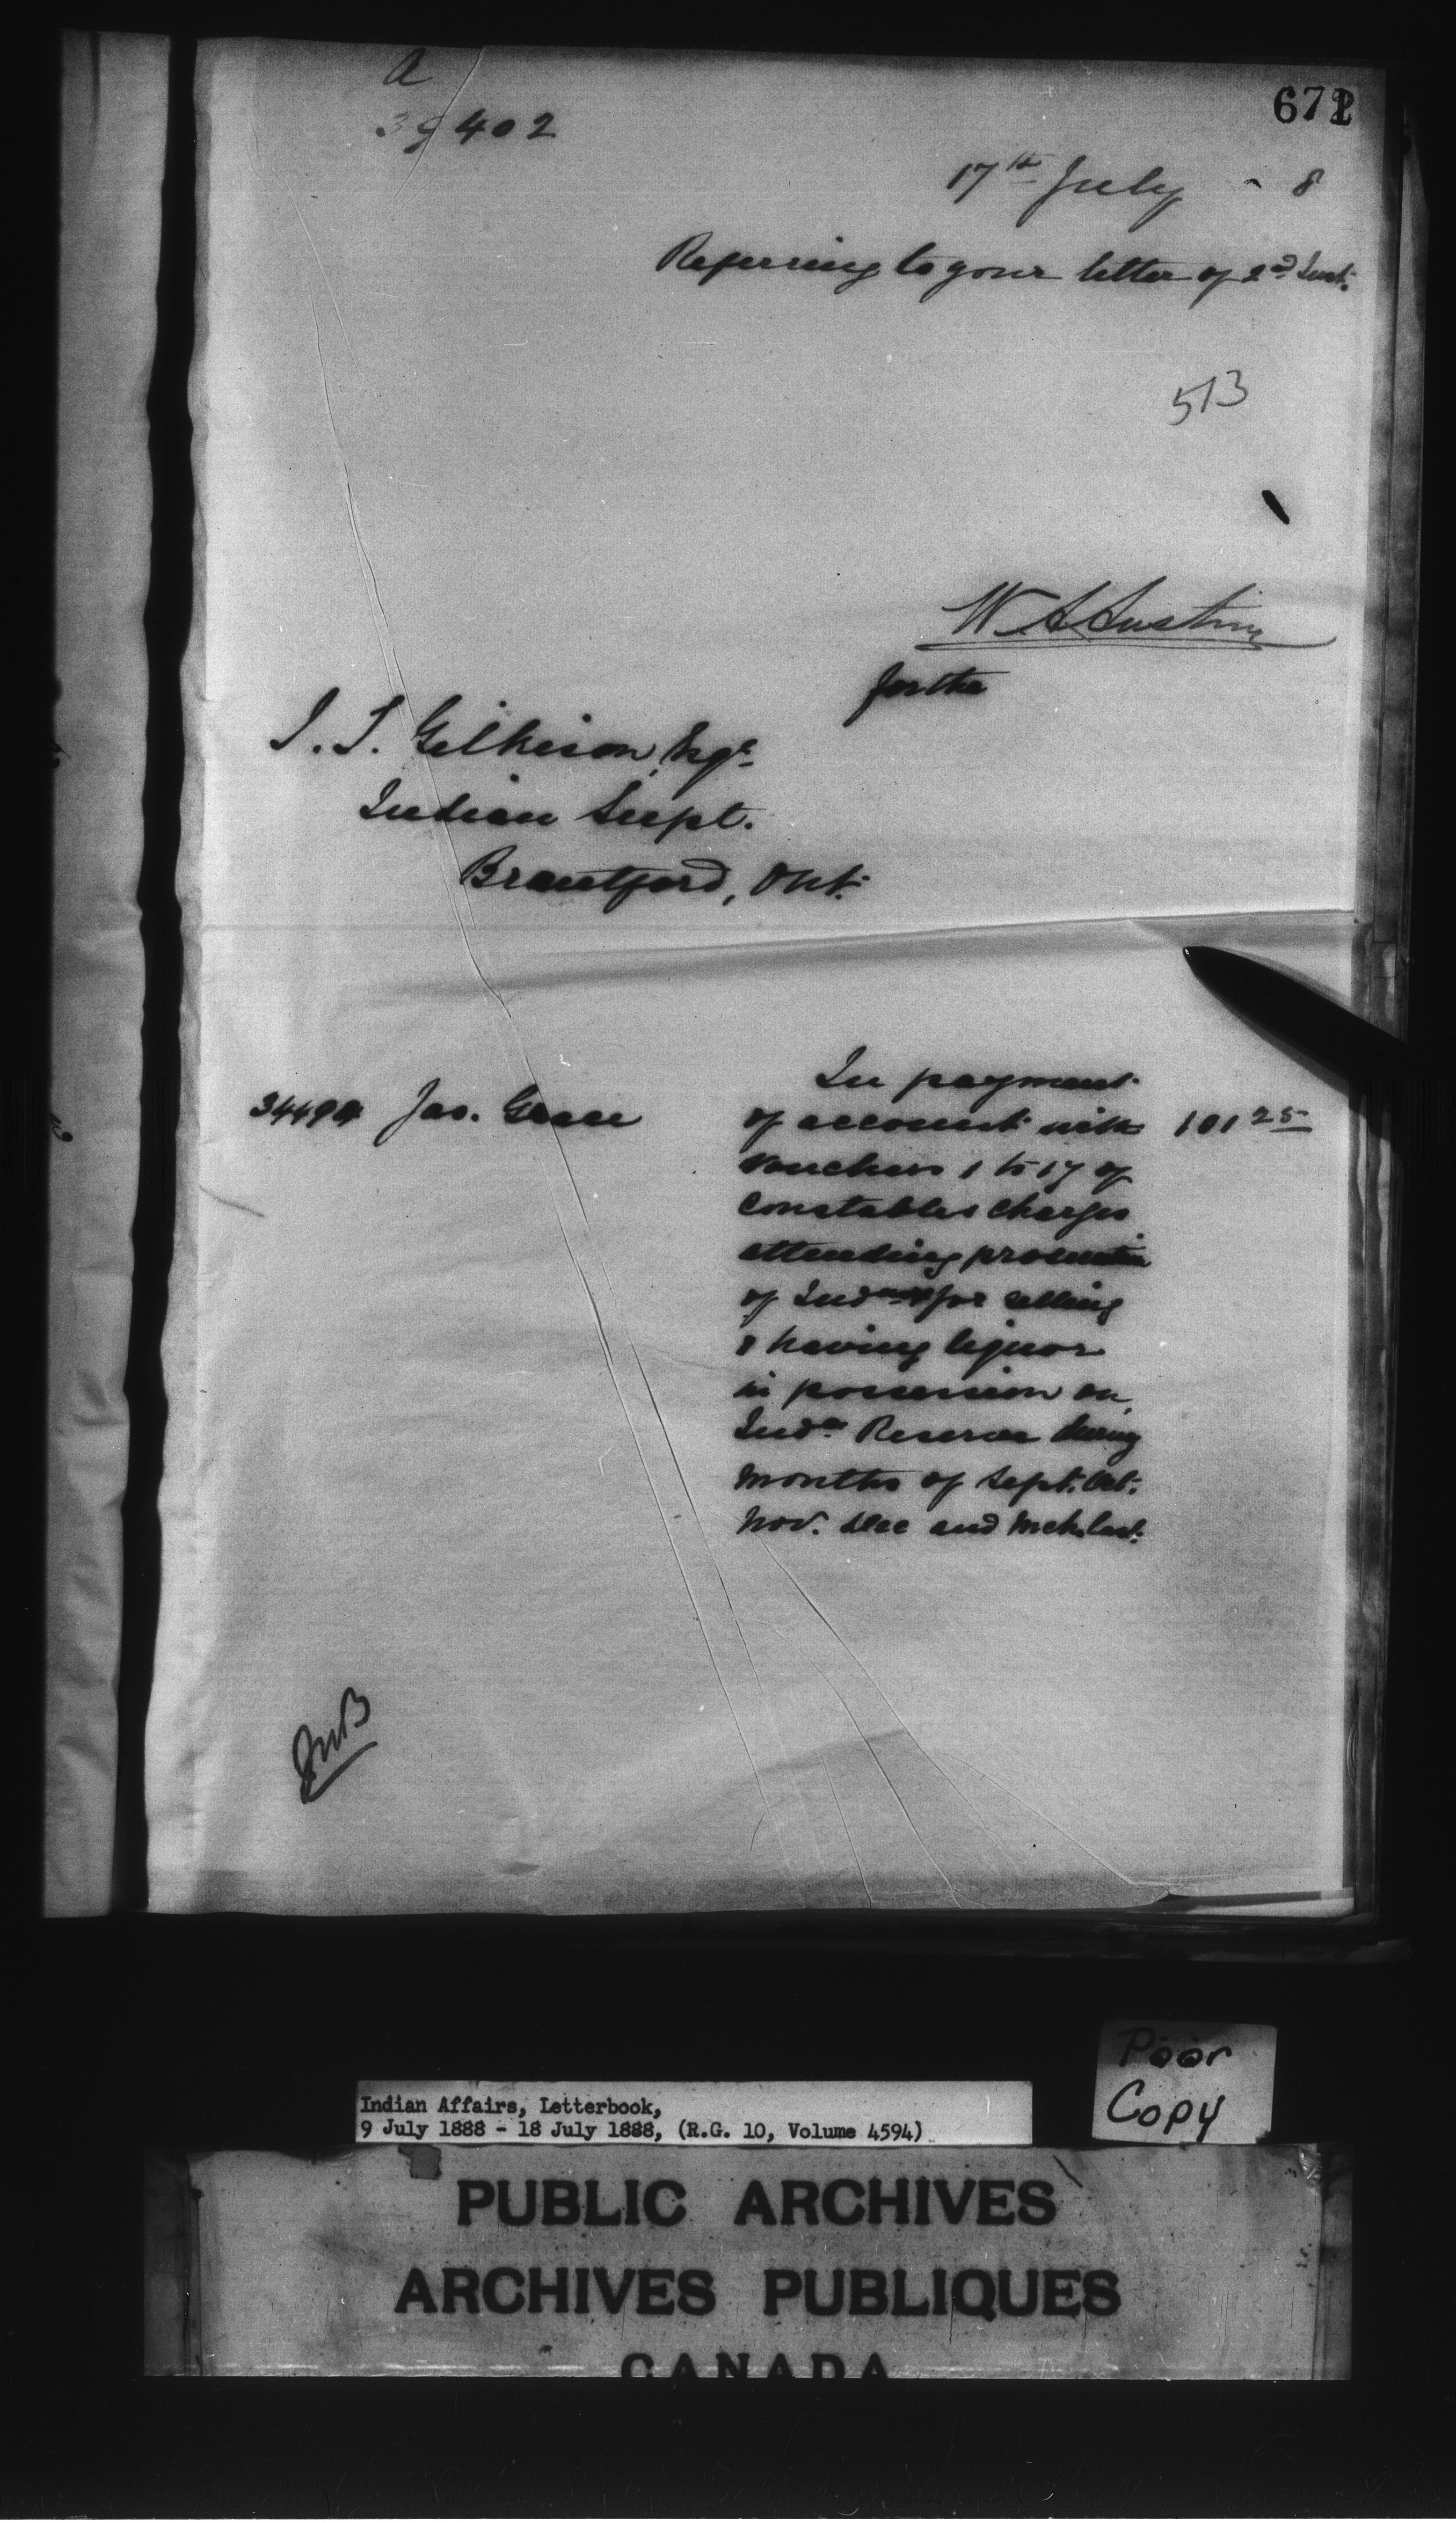 a
39402
671
17th July - 8
Referring to your letter of 2nd Inst.
513
W A Austin
for the
J. T. Gilkison, Esqr.
Indian Supt.
Brantford, Ont.
34494 Jas. Grace
In payment
of account with 101 25
vouchers 1 to 17 of
Constables charges
attending prosecution
of Indns for selling
& having liquor
in possession on
Indn Reserve during
months of Sept. Oct.
Nov. Dec and Mch. last.
JMB
Poor
Copy
Indian Affairs, Letterbook,
9 July 1888 - 18 July 1888, (R.G. 10, Volume 4594)
PUBLIC ARCHIVES
ARCHIVES PUBLIQUES
CANADA